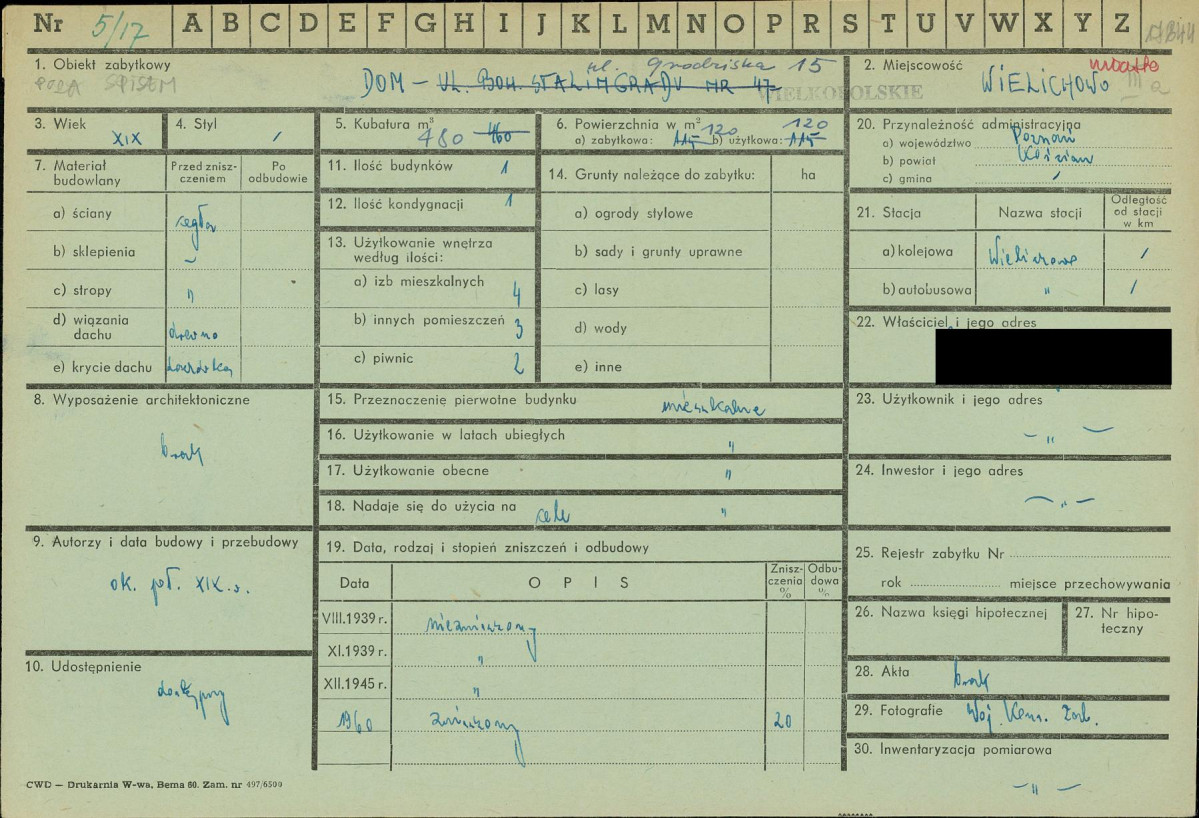 Nr 5/17 A B C D E F G H I J K L M N O P R S T U V W X Y Z
1. Obiekt zabytkowy
POZA SPISEM
ul. Grodziska 15
DOM – UL. BOH. STALINGRADU NR 47
WIELKOPOLSKIE
2. Miejscowość miasto
WIELICHOWO III a
3. Wiek XIX
4. Styl /
5. Kubatura m³ 480 460
6. Powierzchnia w m² 120 120
a) zabytkowa: 115 b) użytkowa: 115
20. Przynależność administracyjna
a) województwo Poznań
b) powiat Kościan
c) gmina /
7. Materiał budowlany
Przed zniszczeniem
Po odbudowie
a) ściany cegła
b) sklepienia –
c) stropy "
d) wiązania dachu drewno
e) krycie dachu dachówka
11. Ilość budynków 1
12. Ilość kondygnacji 1
13. Użytkowanie wnętrza
według ilości:
a) izb mieszkalnych 4
b) innych pomieszczeń 3
c) piwnic 2
14. Grunty należące do zabytku: ha
a) ogrody stylowe
b) sady i grunty uprawne
c) lasy
d) wody
e) inne
21. Stacja
Nazwa stacji
Odległość od stacji w km
a) kolejowa Wielichowo /
b) autobusowa " /
22. Właściciel i jego adres
8. Wyposażenie architektoniczne
brak
15. Przeznaczenie pierwotne budynku mieszkalne
16. Użytkowanie w latach ubiegłych "
17. Użytkowanie obecne "
18. Nadaje się do użycia na cele "
23. Użytkownik i jego adres
– " –
24. Inwestor i jego adres
– " –
9. Autorzy i data budowy i przebudowy
ok. poł. XIX w.
10. Udostępnienie
dostępny
19. Data, rodzaj i stopień zniszczeń i odbudowy
Data
OPIS
Zniszczenia %
Odbudowa %
VIII.1939 r. niezniszczony
XI.1939 r. "
XII.1945 r. "
1960 zniszczony 20
25. Rejestr zabytku Nr
rok miejsce przechowywania
26. Nazwa księgi hipotecznej
27. Nr hipoteczny
28. Akta brak
29. Fotografie Woj. Kons. Zab.
30. Inwentaryzacja pomiarowa
– " –
CWD — Drukarnia W-wa, Bema 60. Zam. nr 497/6500